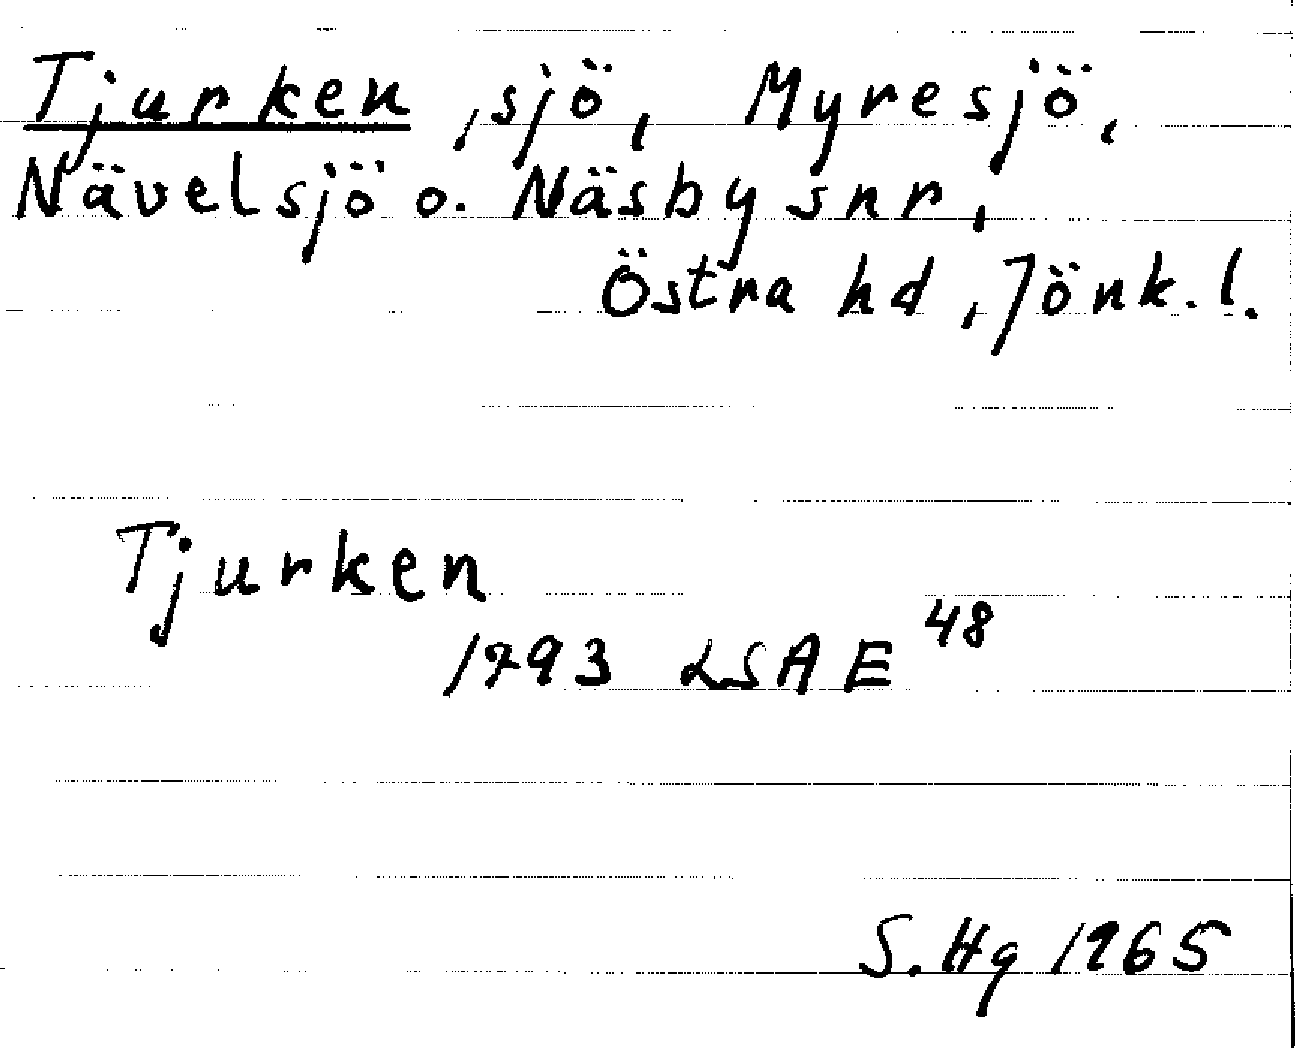 Tjurken, sjö, Myresjö,
Nävelsjö o. Näsby snr,
Östra hd, Jönk. l.
Tjurken
1793 LSA E 48
S. Hg 1965